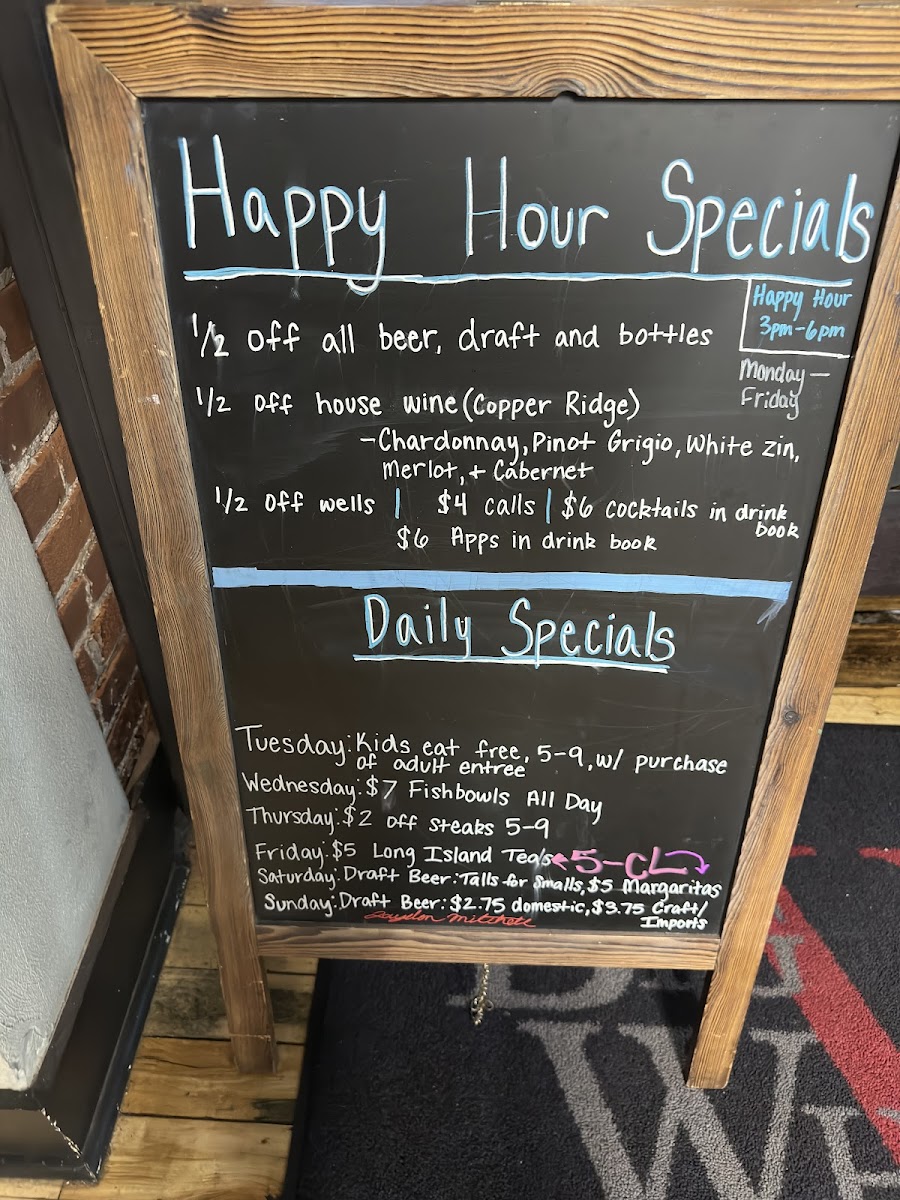 Happy Hour Specials
Happy Hour
3pm-6pm
Monday —
Friday
1/2 off all beer, draft and bottles
1/2 off house wine (Copper Ridge)
-Chardonnay, Pinot Grigio, White zin,
merlot, + Cabernet
1/2 off wells | $4 calls | $6 cocktails in drink
book
$6 Apps in drink book
Daily Specials
Tuesday: Kids eat free, 5-9, w/ purchase
of adult entree
Wednesday: $7 Fishbowls All Day
Thursday: $2 off steaks 5-9
Friday: $5 Long Island Tea's 5-CL
Saturday: Draft Beer: Talls for Smalls, $5 Margaritas
Sunday: Draft Beer: $2.75 domestic, $3.75 Craft/
Imports